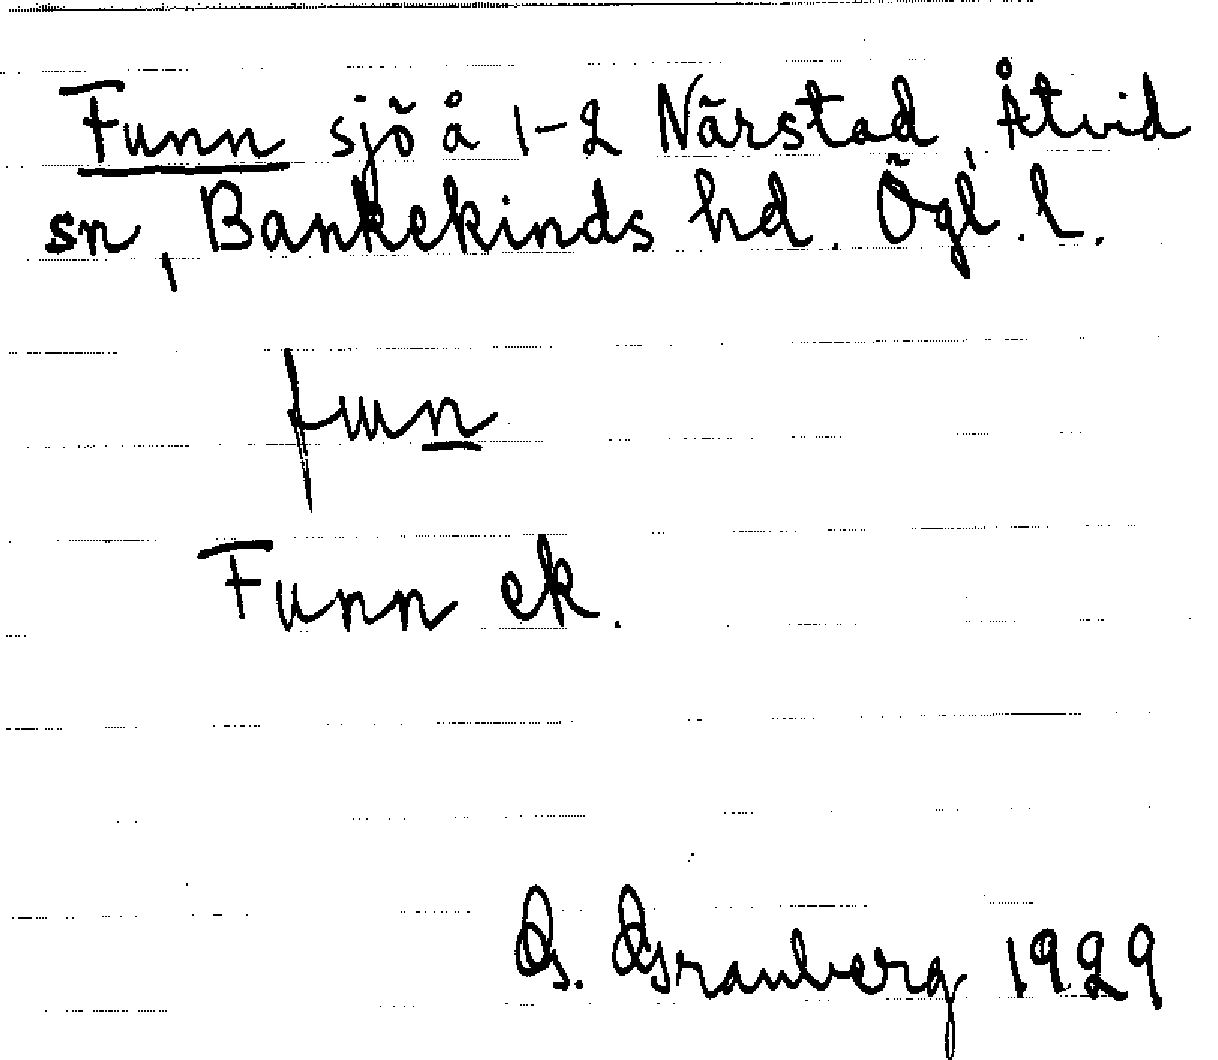 Funn sjö å 1-2 Närstad, Åtvid
sn, Bankekinds hd. Ögl. l.
funn
Funn ek.
G. Granberg 1929